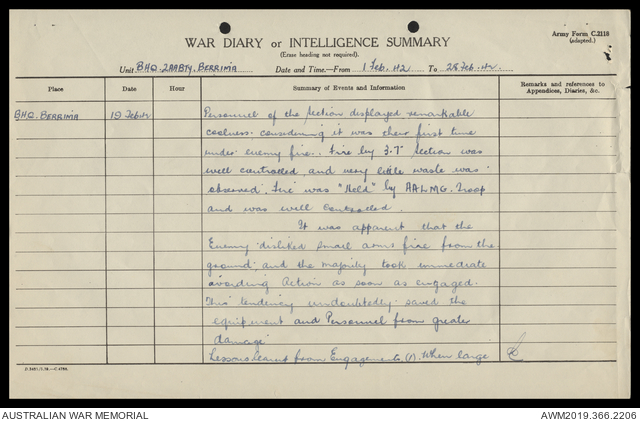 Army Form C.2118
(adapted.)
WAR DIARY or INTELLIGENCE SUMMARY
(Erase heading not required).
Unit BHQ. 2AABTY. BERRIMA Date and Time—From 1 Feb. 42 To 28 Feb. 42.
Place Date Hour Summary of Events and Information Remarks and references to Appendices, Diaries, &c.
BHQ. BERRIMA 19 Feb. 42 Personnel of the Section displayed remarkable
coolness considering it was their first time
under enemy fire. Fire by 3.7" Section was
well controlled, and very little waste was
observed. Fire was "Held" by AALMG. Troop
and was well controlled.
It was apparent that the
Enemy disliked small arms fire from the
ground and the majority took immediate
avoiding Action as soon as engaged.
This tendency undoubtedly saved the
equipment and Personnel from greater
damage
Lessons learnt from Engagements. (1). When large
AUSTRALIAN WAR MEMORIAL AWM2019.366.2206